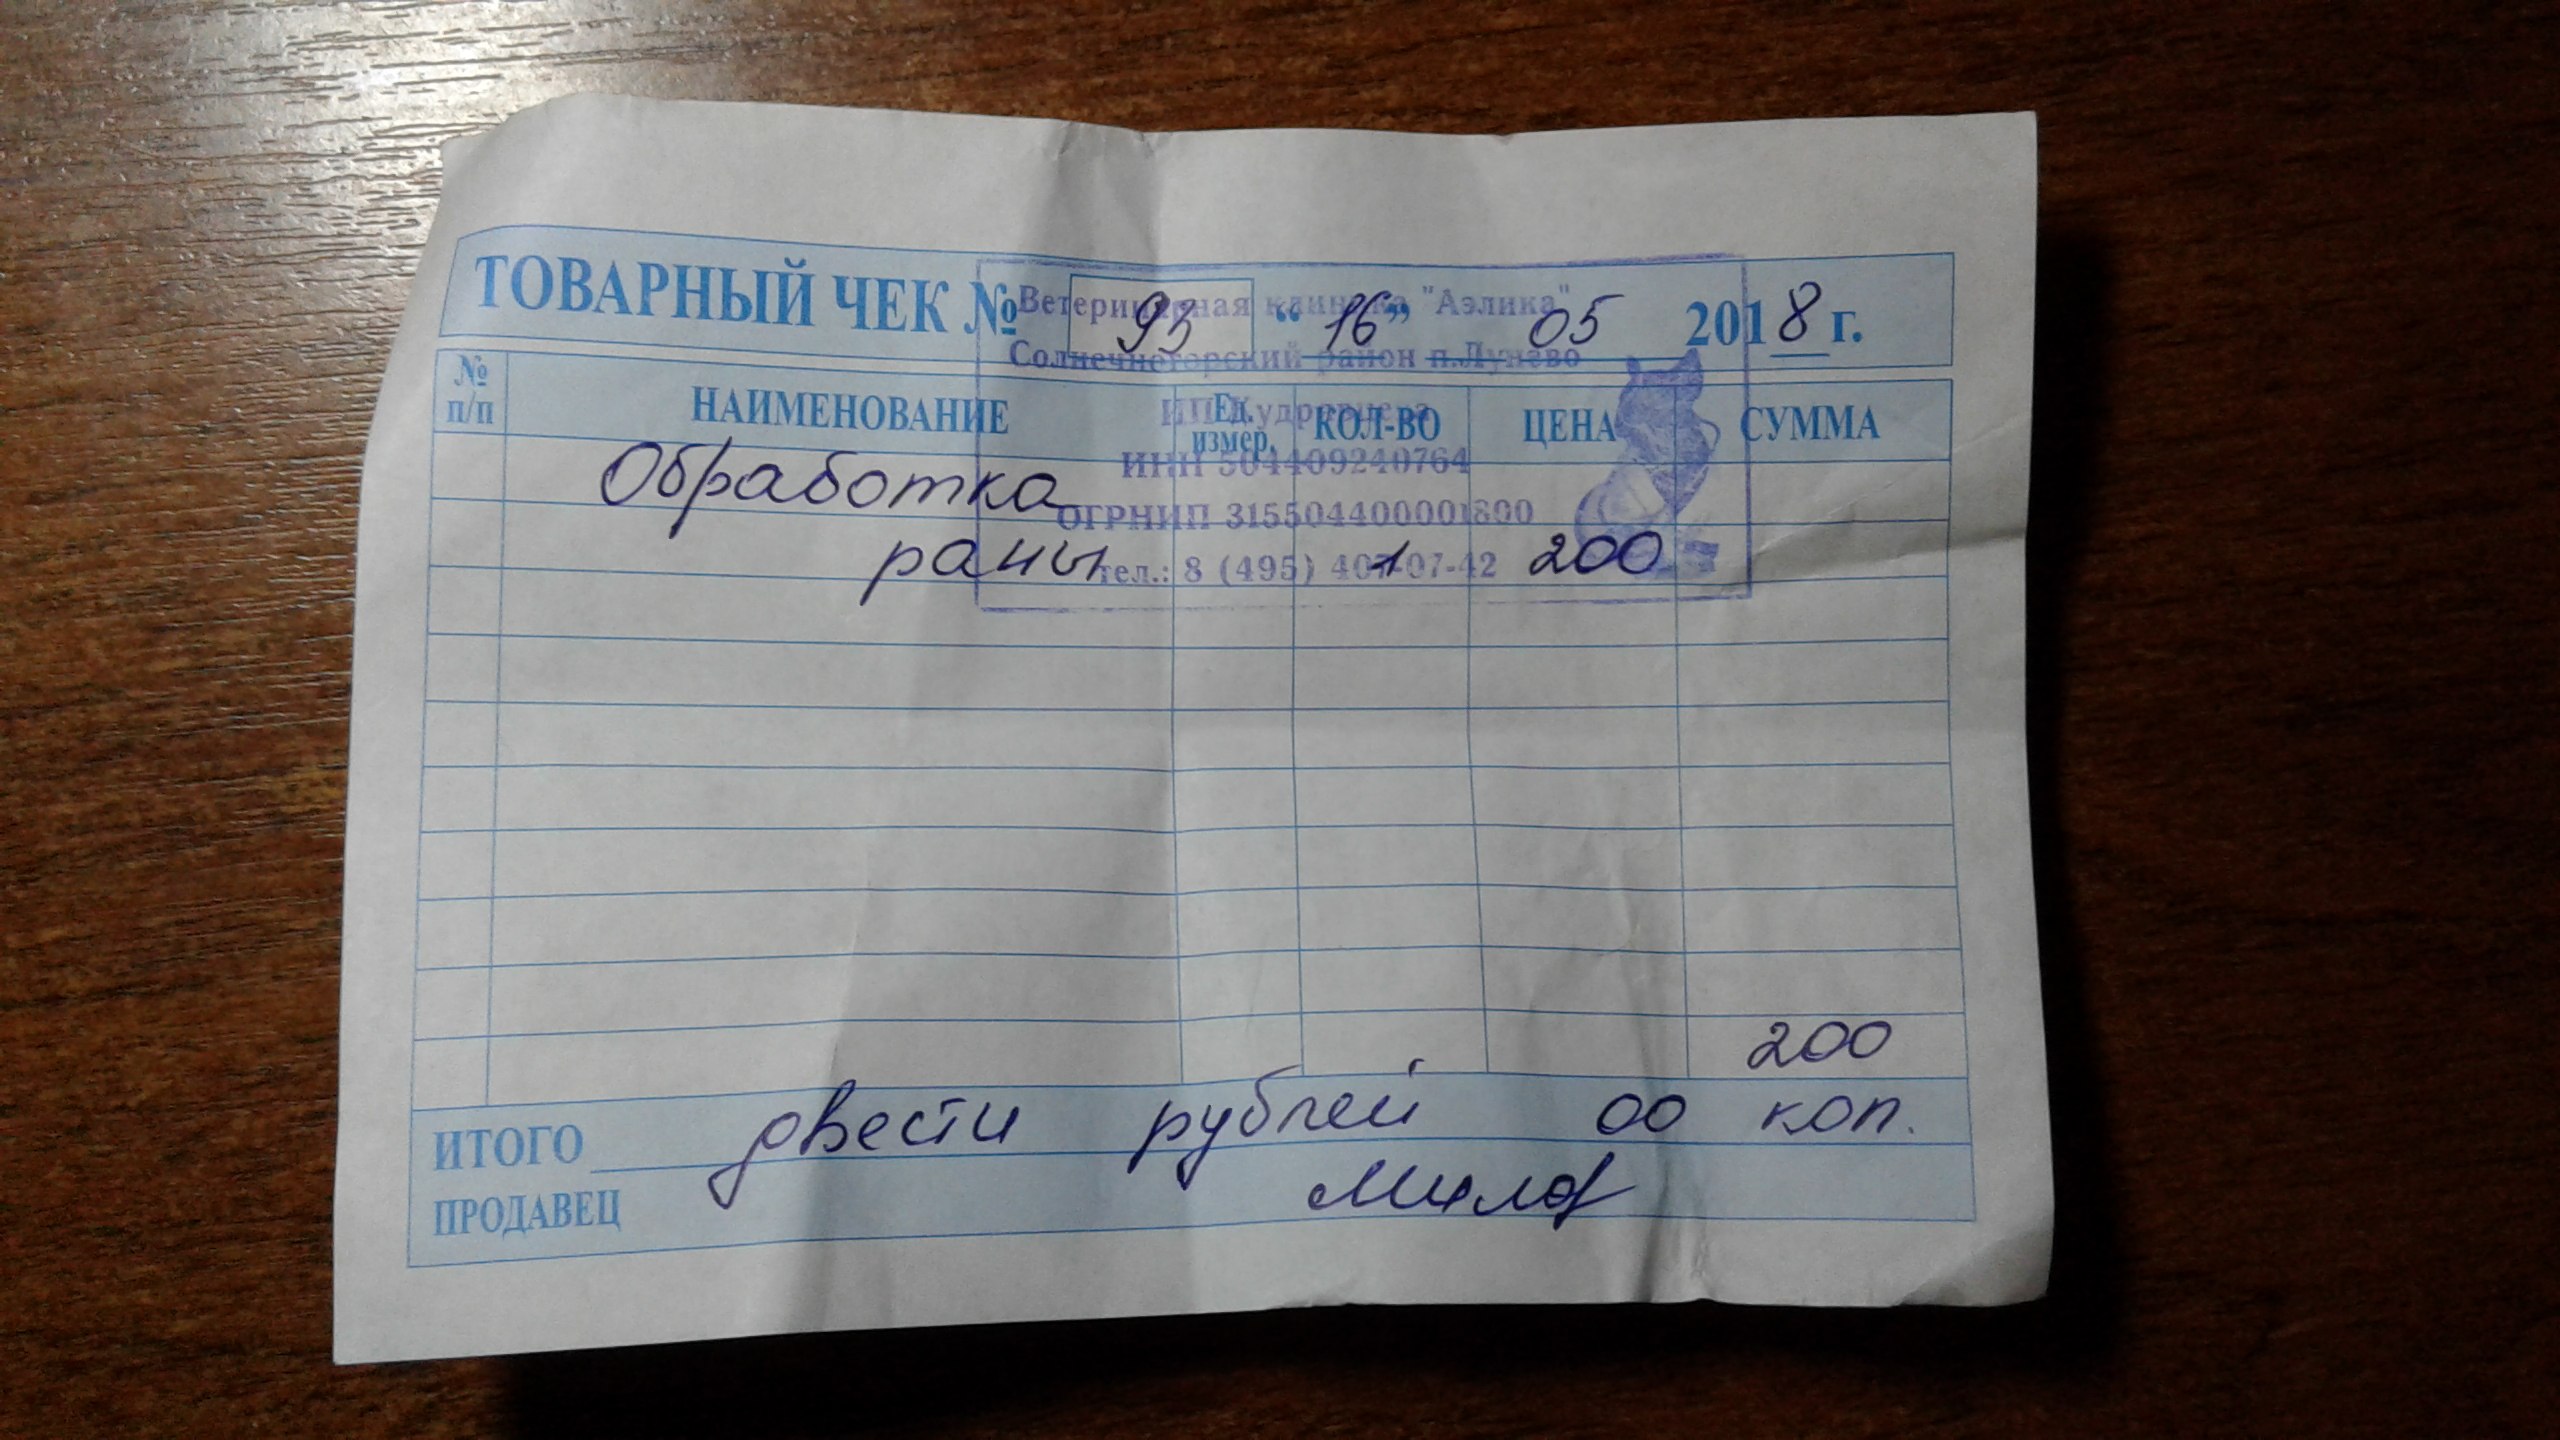 ТОВАРНЫЙ ЧЕК № 93 “16” 05 2018 г.
Ветеринарная клиника "Аэлика"
Солнечногорский район п.Лунево
ИП
ИНН 504409240764
ОГРНИП 315504400001800
тел.: 8 (495) 407-07-42
№ п/п НАИМЕНОВАНИЕ Ед. измер. КОЛ-ВО ЦЕНА СУММА
Обработка
раны 1 200
200
ИТОГО двести рублей 00 коп.
ПРОДАВЕЦ